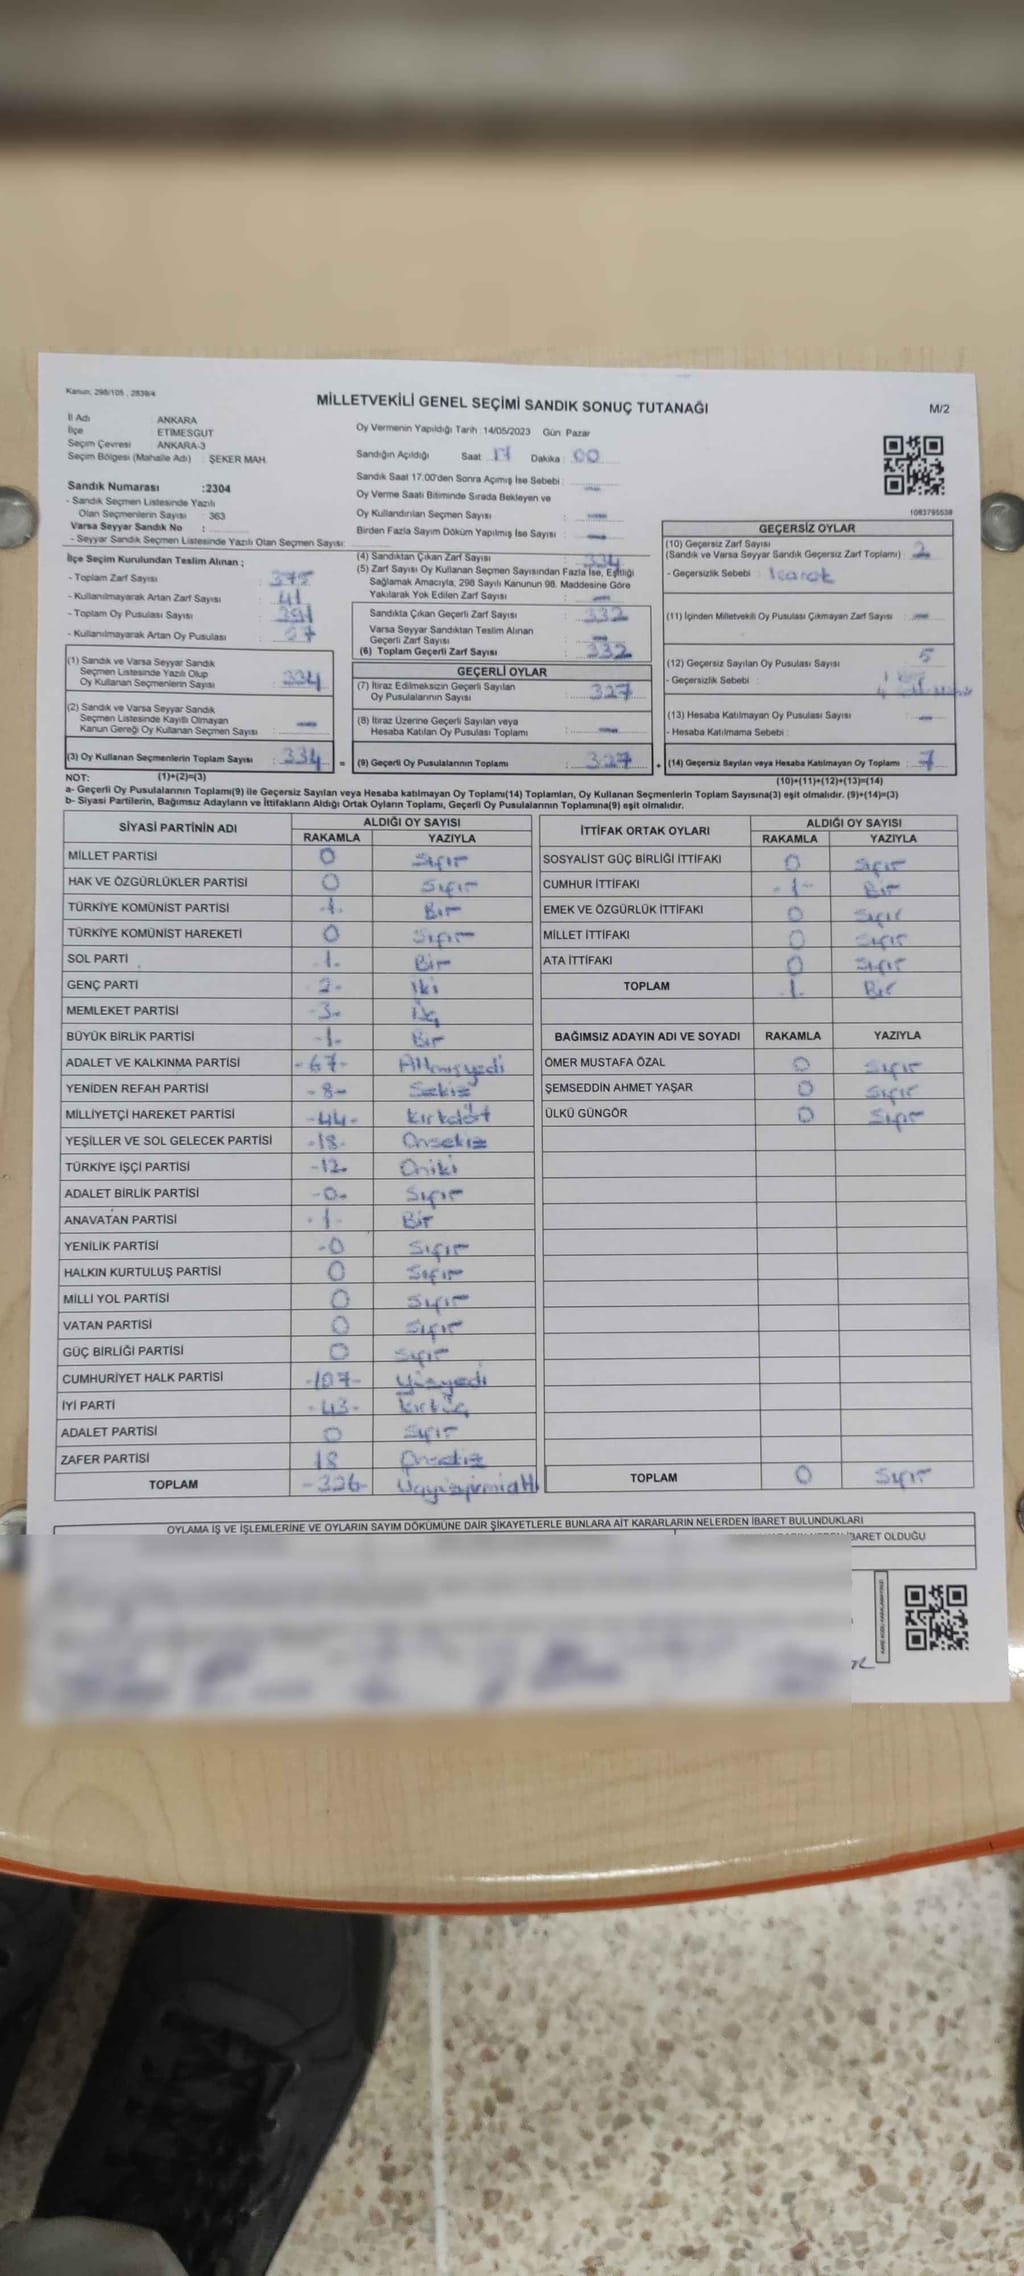 Kanun; 298/105 , 2839/4
MİLLETVEKİLİ GENEL SEÇİMİ SANDIK SONUÇ TUTANAĞI
M/2
İl Adı ANKARA
İlçe ETİMESGUT
Seçim Çevresi ANKARA-3
Seçim Bölgesi (Mahalle Adı) : ŞEKER MAH.
Oy Vermenin Yapıldığı Tarih :14/05/2023 Gün: Pazar
Sandığın Açıldığı Saat : 17 Dakika : 00
Sandık Saat 17.00'den Sonra Açımış İse Sebebi : —
Oy Verme Saati Bitiminde Sırada Bekleyen ve
Oy Kullandırılan Seçmen Sayısı : —
Birden Fazla Sayım Döküm Yapılmış İse Sayısı : —
Sandık Numarası :2304
- Sandık Seçmen Listesinde Yazılı
Olan Seçmenlerin Sayısı : 363
Varsa Seyyar Sandık No :
- Seyyar Sandık Seçmen Listesinde Yazılı Olan Seçmen Sayısı:
1083795538
İlçe Seçim Kurulundan Teslim Alınan ;
- Toplam Zarf Sayısı : 375
- Kullanılmayarak Artan Zarf Sayısı : 41
- Toplam Oy Pusulası Sayısı : 391
- Kullanılmayarak Artan Oy Pusulası :
(1) Sandık ve Varsa Seyyar Sandık
Seçmen Listesinde Yazılı Olup
Oy Kullanan Seçmenlerin Sayısı : 334
(2) Sandık ve Varsa Seyyar Sandık
Seçmen Listesinde Kayıtlı Olmayan
Kanun Gereği Oy Kullanan Seçmen Sayısı : —
(3) Oy Kullanan Seçmenlerin Toplam Sayısı : 334 =
(4) Sandıktan Çıkan Zarf Sayısı : 334
(5) Zarf Sayısı Oy Kullanan Seçmen Sayısından Fazla İse, Eşitliği
Sağlamak Amacıyla, 298 Sayılı Kanunun 98. Maddesine Göre
Yakılarak Yok Edilen Zarf Sayısı : —
Sandıkta Çıkan Geçerli Zarf Sayısı : 332
Varsa Seyyar Sandıktan Teslim Alınan
Geçerli Zarf Sayısı : —
(6) Toplam Geçerli Zarf Sayısı : 332
GEÇERLİ OYLAR
(7) İtiraz Edilmeksizin Geçerli Sayılan
Oy Pusulalarının Sayısı : 327
(8) İtiraz Üzerine Geçerli Sayılan veya
Hesaba Katılan Oy Pusulası Toplamı : —
(9) Geçerli Oy Pusulalarının Toplamı : 327 +
GEÇERSİZ OYLAR
(10) Geçersiz Zarf Sayısı
(Sandık ve Varsa Seyyar Sandık Geçersiz Zarf Toplamı) : 2
- Geçersizlik Sebebi :
(11) İçinden Milletvekili Oy Pusulası Çıkmayan Zarf Sayısı : —
(12) Geçersiz Sayılan Oy Pusulası Sayısı : 5
- Geçersizlik Sebebi :
(13) Hesaba Katılmayan Oy Pusulası Sayısı : —
- Hesaba Katılmama Sebebi :
(14) Geçersiz Sayılan veya Hesaba Katılmayan Oy Toplamı : 7
NOT: (1)+(2)=(3)
(10)+(11)+(12)+(13)=(14)
a- Geçerli Oy Pusulalarının Toplamı(9) ile Geçersiz Sayılan veya Hesaba katılmayan Oy Toplamı(14) Toplamları, Oy Kullanan Seçmenlerin Toplam Sayısına(3) eşit olmalıdır. (9)+(14)=(3)
b- Siyasi Partilerin, Bağımsız Adayların ve İttifakların Aldığı Ortak Oyların Toplamı, Geçerli Oy Pusulalarının Toplamına(9) eşit olmalıdır.
SİYASİ PARTİNİN ADI
ALDIĞI OY SAYISI
RAKAMLA YAZIYLA
MİLLET PARTİSİ 0 Sıfır
HAK VE ÖZGÜRLÜKLER PARTİSİ 0 Sıfır
TÜRKİYE KOMÜNİST PARTİSİ -1- Bir
TÜRKİYE KOMÜNİST HAREKETİ 0 Sıfır
SOL PARTİ -1- Bir
GENÇ PARTİ -2- İki
MEMLEKET PARTİSİ -3- Üç
BÜYÜK BİRLİK PARTİSİ -1- Bir
ADALET VE KALKINMA PARTİSİ -67- Altmışyedi
YENİDEN REFAH PARTİSİ -8- Sekiz
MİLLİYETÇİ HAREKET PARTİSİ -44- Kırkdört
YEŞİLLER VE SOL GELECEK PARTİSİ -18- Onsekiz
TÜRKİYE İŞÇİ PARTİSİ -12- Oniki
ADALET BİRLİK PARTİSİ -0- Sıfır
ANAVATAN PARTİSİ -1- Bir
YENİLİK PARTİSİ -0 Sıfır
HALKIN KURTULUŞ PARTİSİ 0 Sıfır
MİLLİ YOL PARTİSİ 0 Sıfır
VATAN PARTİSİ 0 Sıfır
GÜÇ BİRLİĞİ PARTİSİ 0 Sıfır
CUMHURİYET HALK PARTİSİ -107- Yüzyedi
İYİ PARTİ -43- Kırküç
ADALET PARTİSİ 0 Sıfır
ZAFER PARTİSİ 18 Onsekiz
TOPLAM -326- Üçyüzyirmialtı
İTTİFAK ORTAK OYLARI
ALDIĞI OY SAYISI
RAKAMLA YAZIYLA
SOSYALİST GÜÇ BİRLİĞİ İTTİFAKI 0 Sıfır
CUMHUR İTTİFAKI -1- Bir
EMEK VE ÖZGÜRLÜK İTTİFAKI 0 Sıfır
MİLLET İTTİFAKI 0 Sıfır
ATA İTTİFAKI 0 Sıfır
TOPLAM 1 Bir
BAĞIMSIZ ADAYIN ADI VE SOYADI RAKAMLA YAZIYLA
ÖMER MUSTAFA ÖZAL 0 Sıfır
ŞEMSEDDİN AHMET YAŞAR 0 Sıfır
ÜLKÜ GÜNGÖR 0 Sıfır
TOPLAM 0 Sıfır
OYLAMA İŞ VE İŞLEMLERİNE VE OYLARIN SAYIM DÖKÜMÜNE DAİR ŞİKAYETLERLE BUNLARA AİT KARARLARIN NELERDEN İBARET BULUNDUKLARI
OLDUĞU